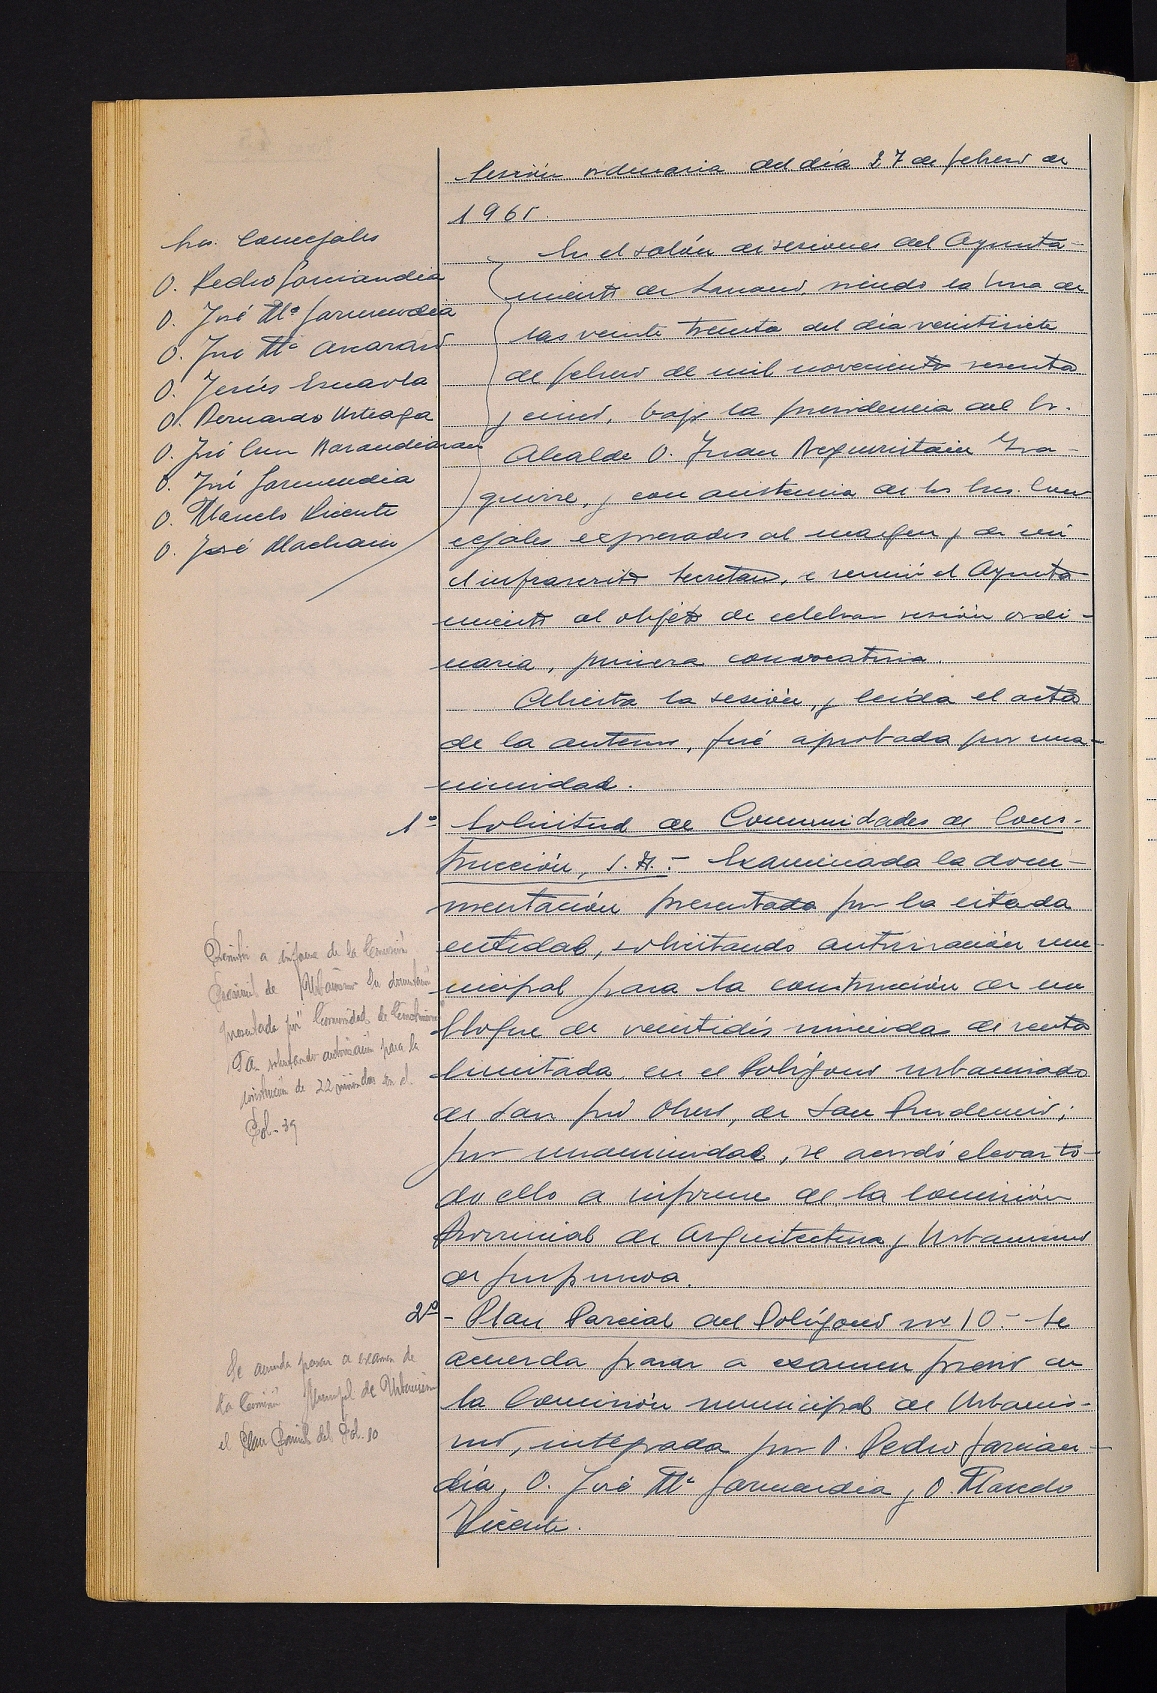 Sesión ordinaria del día 27 de febrero de
1965.
Sres. Concejales
D. Pedro Garciandía
D. José Mª Garmendia
D. José Mª
D. Jesús Esnaola
D. Bernardo Urteaga
D. José Luis Barandiaran
D. José Garmendia
D. Marcelo Vicente
D. José Machain
En el salón de sesiones del Ayunta-
miento de Lazcano, siendo la hora de
las veinte treinta del día veintisiete
de febrero de mil novecientos sesenta
y cinco, bajo la presidencia del Sr.
Alcalde D. Juan Ira-
guirre, y con asistencia de los Sres. Con
cejales expresados al margen y de mí
el infrascrito Secretario, se reunió el Ayunta
miento al objeto de celebrar sesión ordi-
naria, primera convocatoria.
Abierta la sesión, y leída el acta
de la anterior, fué aprobada por una-
nimidad.
1º Solicitud de Comunidades de Cons-
trucción, S.A.- Examinada la docu-
mentación presentada por la citada
entidad, solicitando autorización mu-
nicipal para la construcción de un
bloque de veintidós viviendas de renta
limitada, en el Polígono urbanizado
de San José Obrero, de San Prudencio;
por unanimidad, se acordó elevar to-
do ello a informe de la Comisión
Provincial de Arquitectura y Urbanismo
de Guipúzcoa.
Remitir a informe de la Comisión
Provincial de Urbanismo la documentación
presentada por "Comunidad de Construcciones
S.A. solicitando autorización para la
construcción de 22 viviendas en el
Pol. 39
2º - Plan Parcial del Polígono nº 10.- Se
acuerda pasar a examen previo de
la Comisión municipal de Urbanis-
mo, integrada por D. Pedro Garcian-
día, D. José Mª Garmendia y D. Marcelo
Vicente.
Se acuerda pasar a examen de
la Comisión Municipal de Urbanismo
el Plan Parcial del Pol. 10